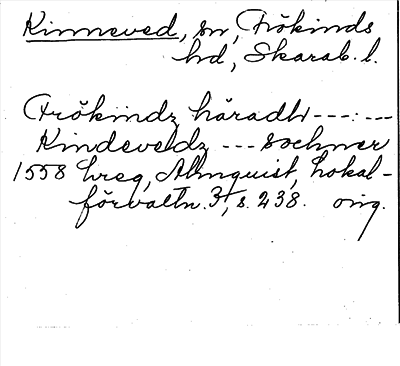 Kinneved, sn, Frökinds
hd, Skarab. l.
Frökindz häradh ---:---
Kindeveldz --- sochner
1558 hreg, Almquist, Lokal-
förvaltn. 3, s. 238. orig.